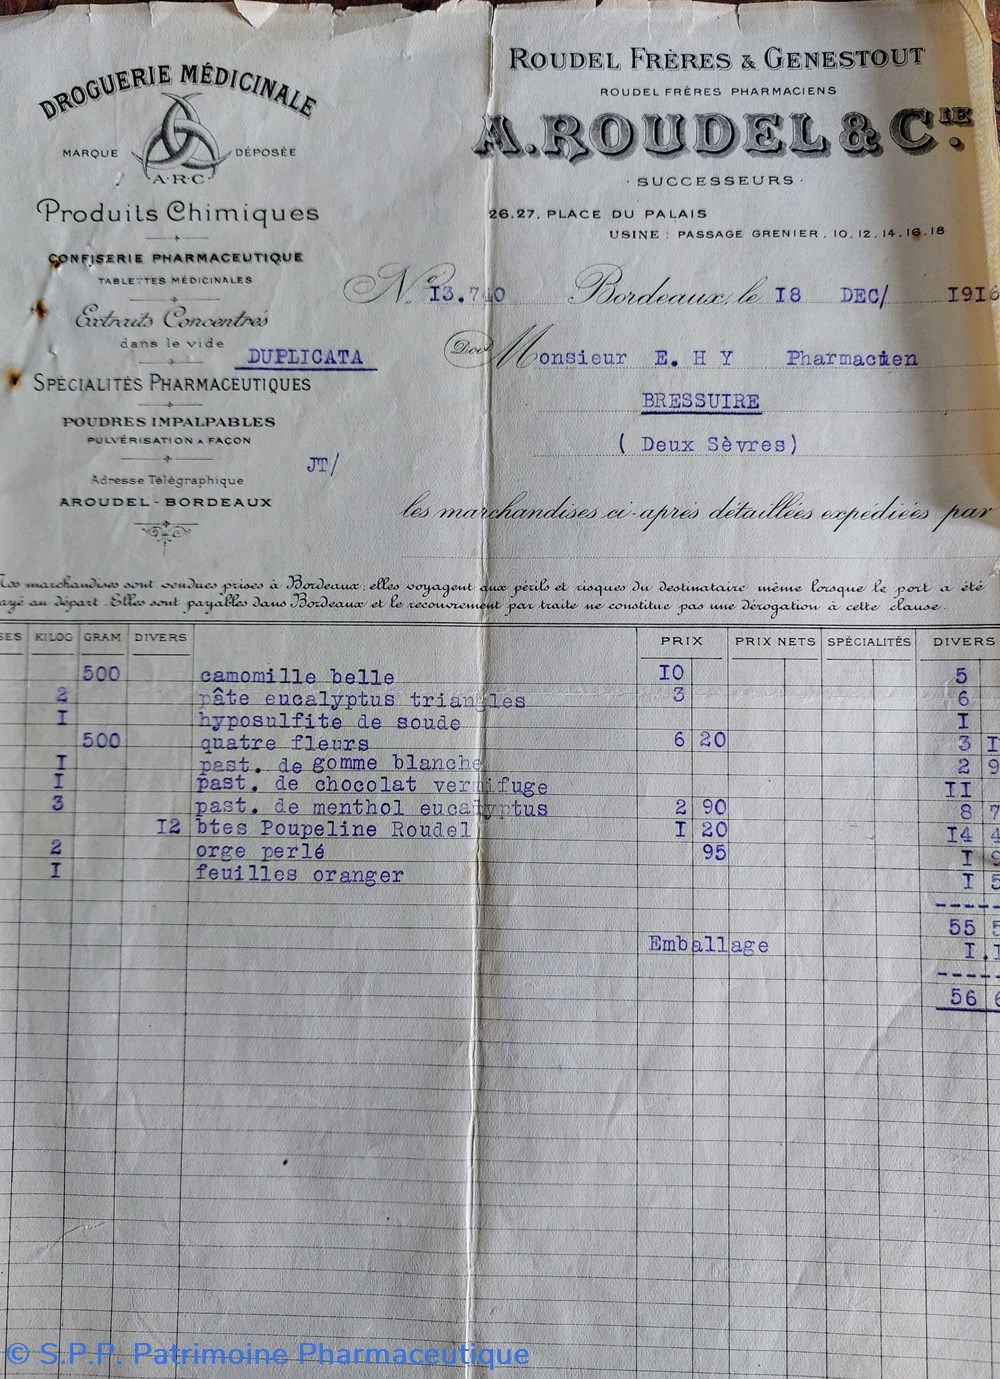 DROGUERIE MÉDICINALE
MARQUE DÉPOSÉE
A.R.C.
Produits Chimiques
CONFISERIE PHARMACEUTIQUE
TABLETTES MÉDICINALES
Extraits Concentrés
dans le vide
DUPLICATA
SPÉCIALITÉS PHARMACEUTIQUES
POUDRES IMPALPABLES
PULVÉRISATION A FAÇON
JT/
Adresse Télégraphique
AROUDEL - BORDEAUX
ROUDEL FRÈRES & GENESTOUT
ROUDEL FRÈRES PHARMACIENS
A. ROUDEL & CIE.
· SUCCESSEURS ·
26.27, PLACE DU PALAIS
USINE : PASSAGE GRENIER . 10.12.14.16.18
No. 13.740 Bordeaux, le 18 DEC/ 1916
Doit Monsieur E. H Y Pharmacien
BRESSUIRE
( Deux Sèvres)
les marchandises ci-après détaillées expédiées par
Nos marchandises sont vendues prises à Bordeaux, elles voyagent aux périls et risques du destinataire même lorsque le port a été
ayé au départ. Elles sont payables dans Bordeaux et le recouvrement par traite ne constitue pas une dérogation à cette clause.
SES KILOG GRAM DIVERS PRIX PRIX NETS SPÉCIALITÉS DIVERS
500 camomille belle 10 5
2 pâte eucalyptus triangles 3 6
I hyposulfite de soude I
500 quatre fleurs 6 20 3 I
I past. de gomme blanche 2 9
I past. de chocolat vermifuge II
3 past. de menthol eucalyptus 2 90 8 7
I2 btes Poupeline Roudel I 20 14 4
2 orge perlé 95 I 9
I feuilles oranger I 5
55 5
Emballage I.1
56 6
© S.P.P. Patrimoine Pharmaceutique